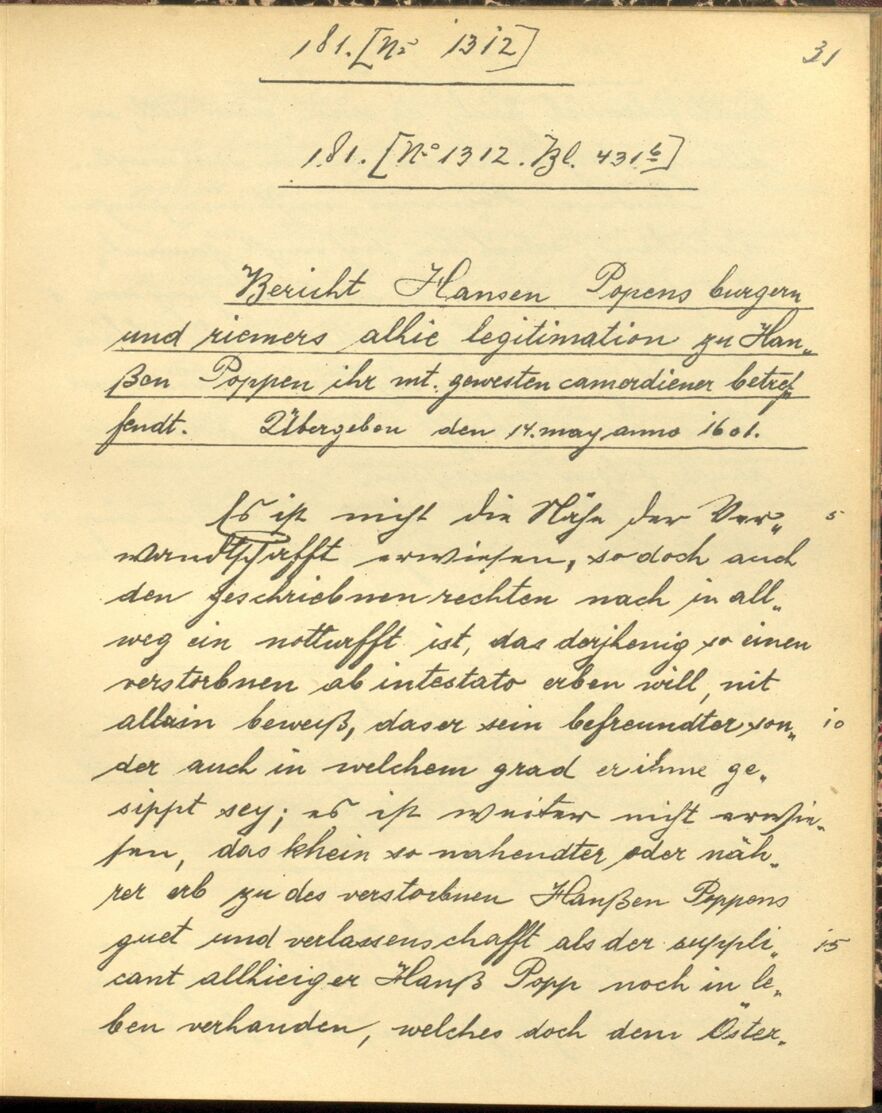 181. [No 1312]
31
181. [No 1312. Bl. 431b]
Bericht Hansen Popens burgern
und riemers alhie legitimation zu Han„
ßen Poppen ihr mt. gewesten camerdiener betref„
fendt. Übergeben den 14. may anno 1601.
Es ist nicht die Nähe der Ver„ 5
wandtschafft erwiesen, so doch auch
den geschriebnen rechten nach in all„
weg ein notturfft ist, das derjhenig so einen
verstorbnen ab intestato erben will, nit
allain beweiß, das er sein befreundter son„ 10
der auch in welchem grad er ihme ge„
sippt sey; es ist weiter nicht erwie„
sen, das khein so nahendter oder näh„
rer erb zu des verstorbnen Hanßen Poppens
guet und verlassenschafft als der suppli„ 15
cant allhieiger Hanß Popp noch in le„
ben verhanden, welches doch dem Öster„